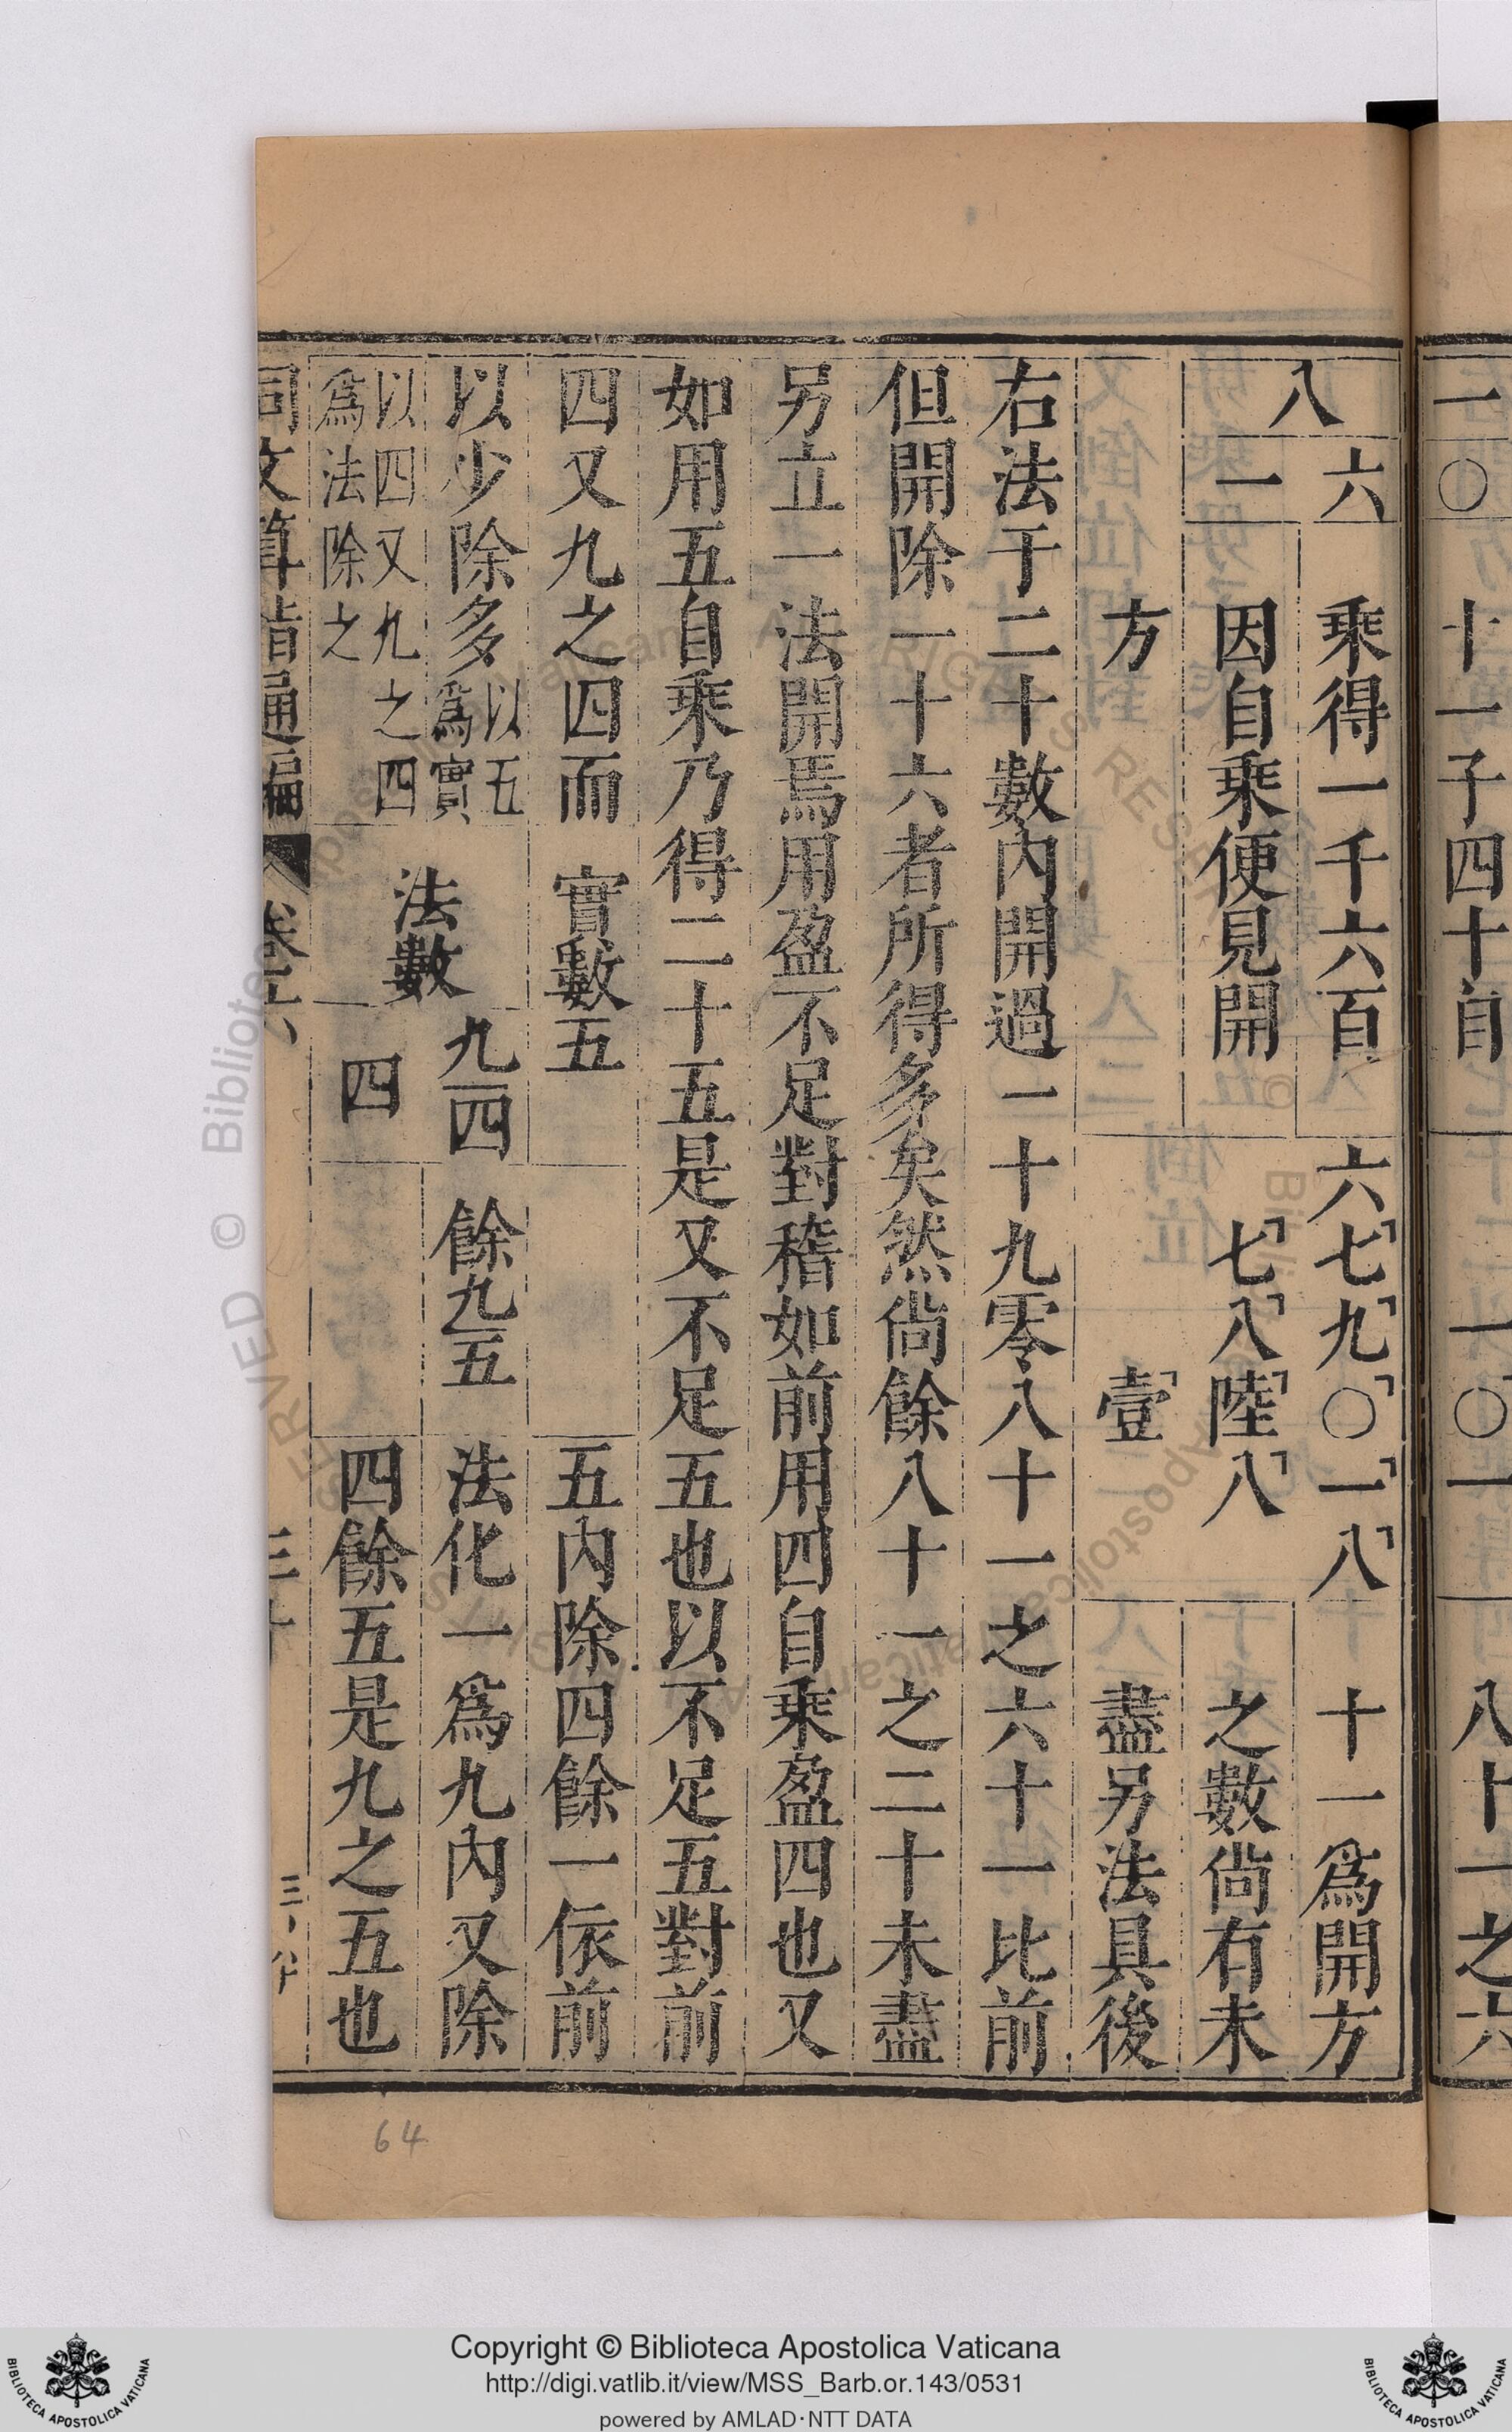 一〇 十一子四十自 一〇一 八十一之六
八六 乘得一千六百 六七九〇一八 十一爲開方
一 因自乘便見開 七八陸八 之數尙有未
方 壹 盡另法具後
右法于二十數內開過一十九零八十一之六十一比前
但開除一十六者所得多矣然尙餘八十一之二十未盡
另立一法開焉用盈不足對稽如前用四自乘盈四也又
如用五自乘乃得二十五是又不足五也以不足五對前
四又九之四而 實數五 五內除四餘一依前
以少除多以五爲實 法數 九四 餘九五 法化一爲九內又除
以四又九之四爲法除之 四 四餘五是九之五也
同文算指通編 卷六 三十
64
Copyright © Biblioteca Apostolica Vaticana
http://digi.vatlib.it/view/MSS_Barb.or.143/0531
powered by AMLAD·NTT DATA
BIBLIOTECA APOSTOLICA VATICANA
BIBLIOTECA APOSTOLICA VATICANA